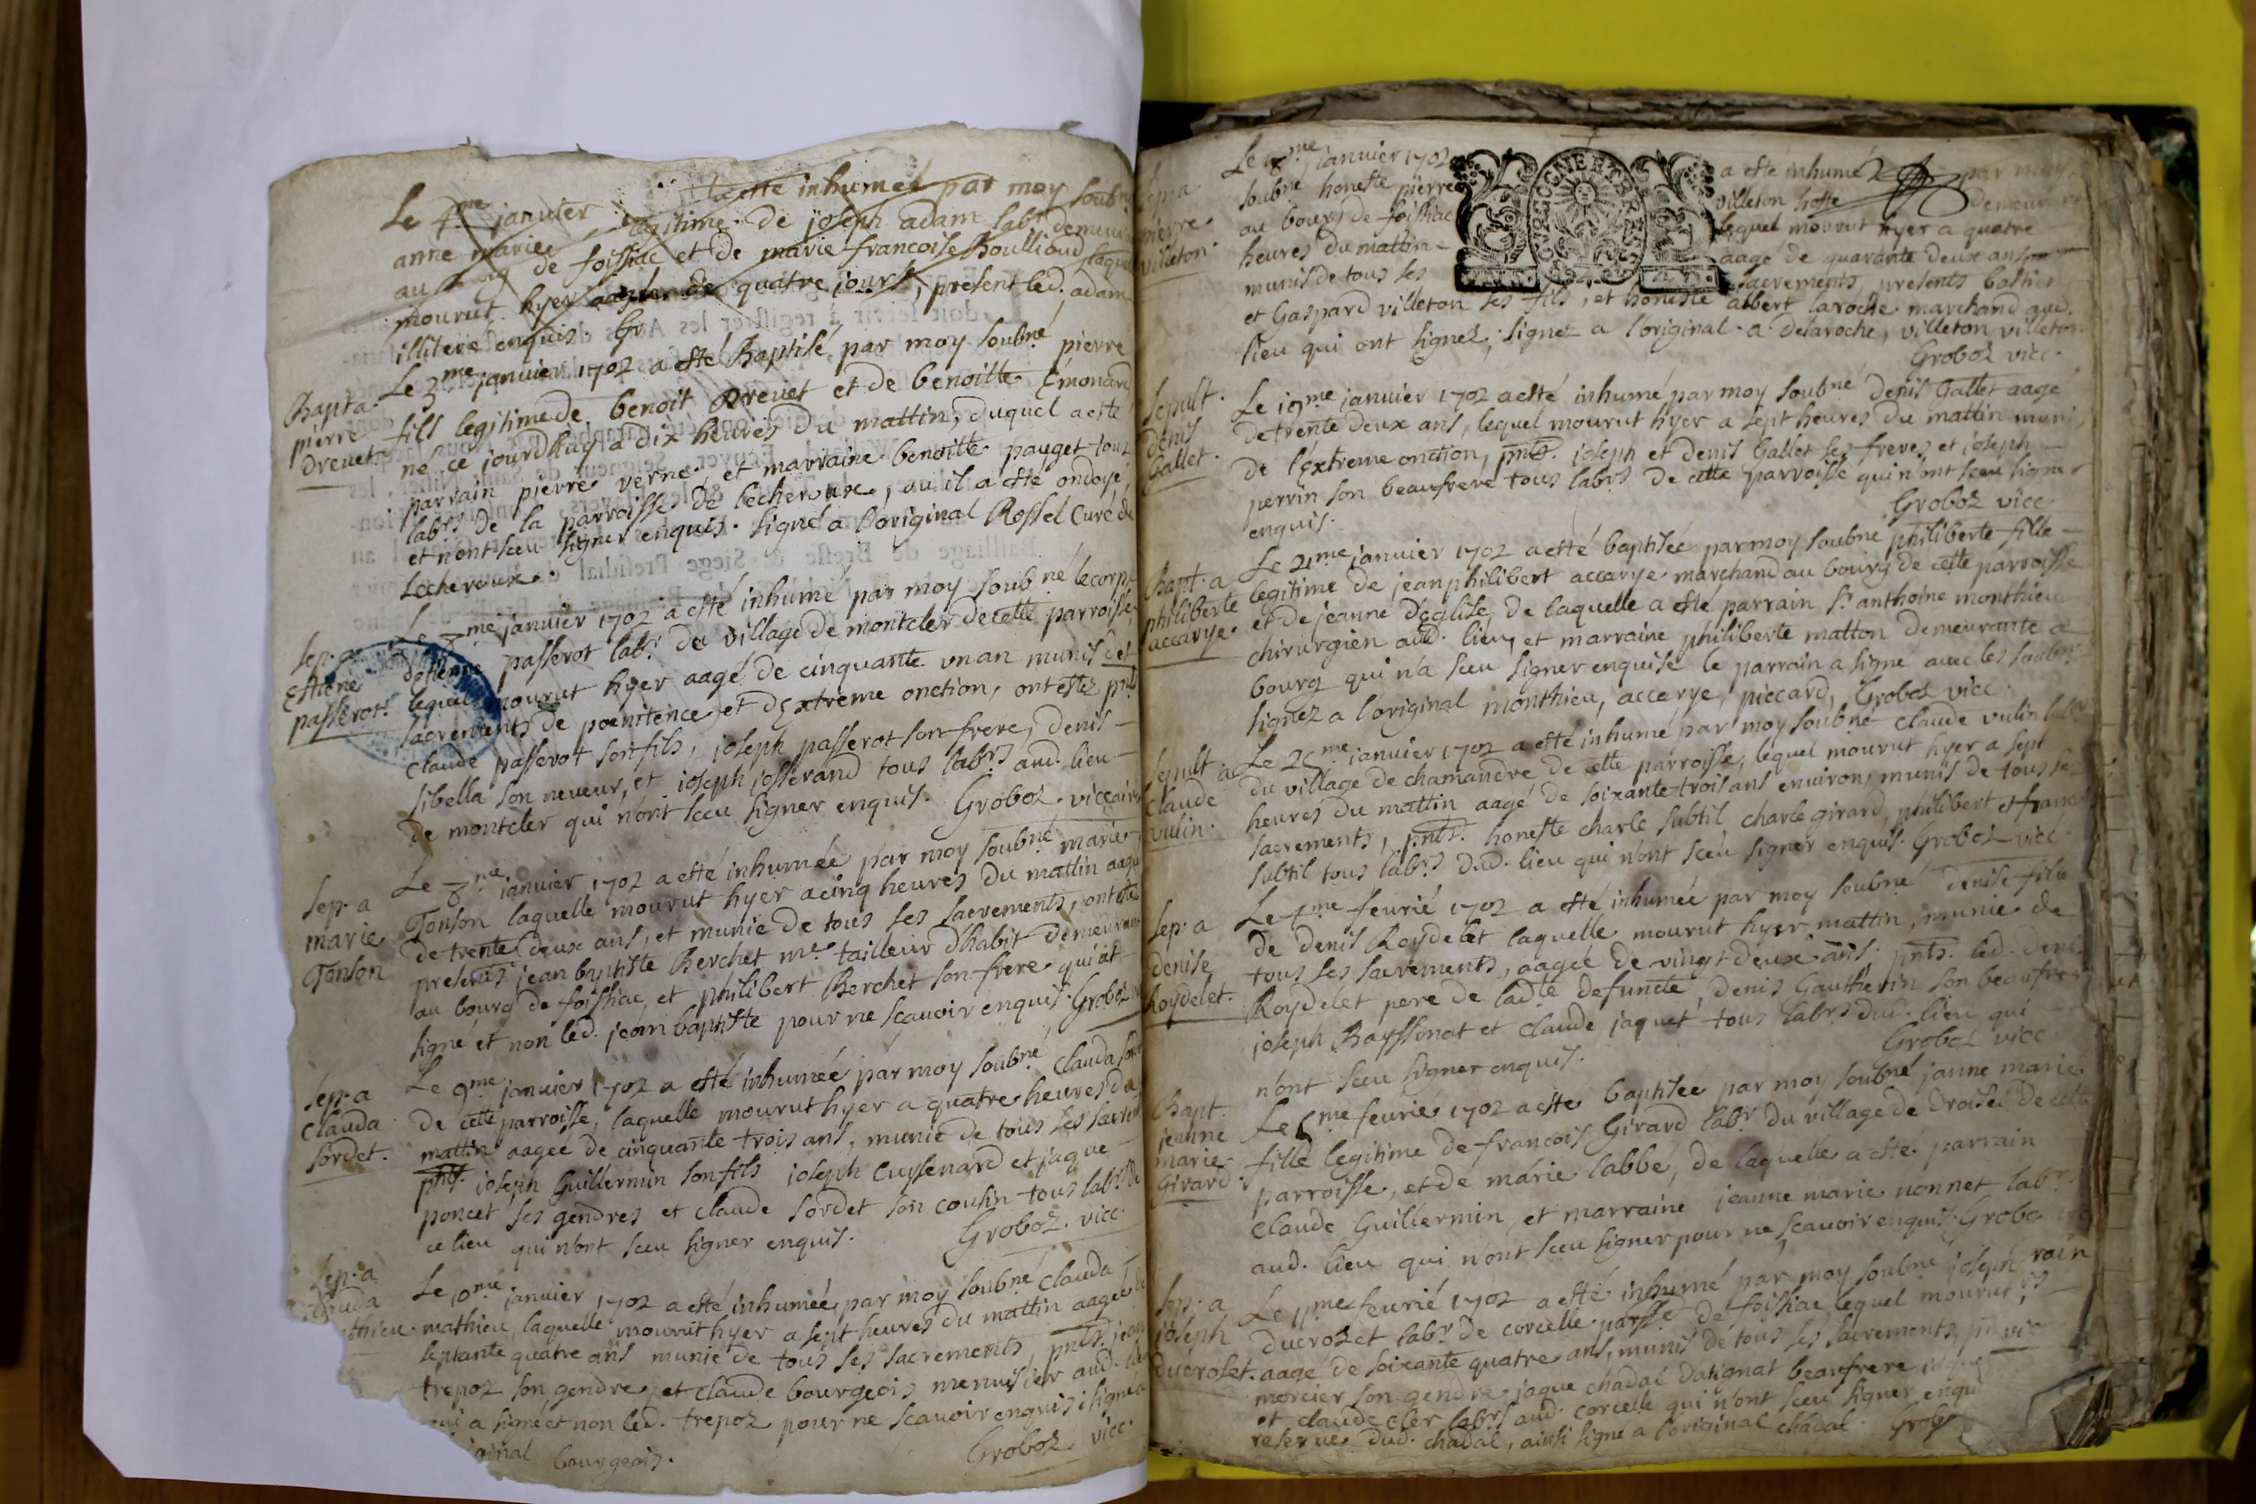 Le 4me janvier a esté inhumée par moy soubné
anne marie legitime de joseph adam labr demeurant
au bourg de foissiac et de marie francoise Boulliaud laquelle
mourut hyer aagée de quatre jours, present led. adam
illiteré enquis Gr
Bapta.
pierre
Drevet.
Le 3me janvier 1702 a esté Baptisé par moy soubné pierre
fils legitime de benoit Drevet et de benoitte Emonard
né ce jourdhuy a dix heures du mattin, duquel a esté
parrain pierre verne, et marraine benoitte pauget tout
labrs de la parroisse de lecheroux, au il a esté ondoyé,
et n'ont sceu signer enquis. signé a l'original Rossel Curé de
Lecheroux.
Sep. a
Estiene
passerot.
Le 7me janvier 1702 a esté inhumé par moy soubné le corps
d'etienne passerot labr. du village de montcler de cette parroisse,
lequel mourut hyer aagé de cinquante un an munis des
sacrements de poenitence et d'Extreme onction, ont estez pnts
Claude passerot son fils, joseph passerot son frere, denis
sibella son neveur, et joseph josserand tous labrs aud. lieu
de montcler qui n'ont sceu signer enquis. Groboz. viccaire
Sep. a
marie
Tonson
Le 8me janvier 1702 a esté inhumée par moy soubné marie
Tonson laquelle mourut hyer a cinq heures du mattin aagée
de trente deux ans, et munie de tous ses sacrements, ont esté
presents jean baptiste Berchet mre. tailleur d'habit demeurant
au bourg de foissiac, et philibert Berchet son frere qui at
signé et non led. jean baptiste pour ne scavoir enquis. Groboz
Sep. a
Clauda
Sordet.
Le 9me janvier 1702 a esté inhumée par moy soubné Clauda Sordet
de cette parroisse, laquelle mourut hyer a quatre heures du
mattin aagée de cinquante trois ans, munie de tous ses sacrem
pnts. joseph Guillermin son fils joseph Cussenard et jaque
poncet ses gendres et claude Sordet son cousin tous labrs. de
ce lieu qui n'ont sceu signer enquis. Groboz. vicc.
Sep. a
Clauda
thieu.
Le 10me janvier 1702 a esté inhumée par moy soubné Clauda
mathieu laquelle mourut hyer a sept heures du mattin aagée de
septante quatre ans munie de tous ses sacrements, pnts. jean
trepoz son gendre, et claude bourgeois menuisier aud. lieu
qui a signé et non led. trepoz pour ne scavoir enquis signé a
l'original bourgeois. Groboz vicc.
Sep. a
pierre
villeton.
Le 18me janvier 1702 a esté inhumé par moy
soubné honeste pierre villeton hoste demeurant
au bourg de foissiac lequel mourut hyer a quatre
heures du mattin aagé de quarante deux ans
munis de tous ses sacrements, presents bastien
et Gaspard villeton ses fils, et honeste albert laroche marchand aud.
lieu qui ont signez, signez a l'original. a. delaroche, villeton villeton
Groboz vicc.
Sepult.
Denis
Gallet.
Le 19me janvier 1702 a esté inhumé par moy soubné Denis Gallet aagé
de trente deux ans, lequel mourut hyer a sept heures du mattin muni
de l'Extreme onction, pnts. joseph et denis Gallet ses freres, et joseph
perrin son beaufrere tous labrs de cette parroisse qui n'ont sceu signer
enquis. Groboz vicc.
Bapt. a
philiberte
accarye.
Le 21me janvier 1702 a esté baptisée par moy soubné philiberte fille
legitime de jean philibert accarye marchand au bourg de cette parroisse
et de jeanne deglise, de laquelle a esté parrain Sr. anthoine monthieu
chirurgien aud. lieu, et marraine philiberte matton demeurante a
bourg qui n'a sceu signer enquise le parrain a signé avec les soubne.
signez a l'original monthieu, accarye, piccard, Groboz vicc.
Sepult. a
Claude
vulin.
Le 25me janvier 1702 a esté inhumé par moy soubné claude vulin labr
du village de chamandre de cette parroisse, lequel mourut hyer a sept
heures du mattin aagé de soixante trois ans environ, munis de tous se
sacrements, pnts. honeste charle subtil charle girard, philibert et franc
subtil tous labrs dud. lieu qui n'ont sceu signer enquis. Groboz vicc.
Sep. a
denise
Roydelet.
Le 4me fevrié 1702 a esté inhumée par moy soubné denise fille
de denis Roydelet laquelle mourut hyer mattin, munie de
tous ses sacrements, aagée de vingt deux ans; pnts. led. denis
Roydelet pere de ladte defuncte, denis Gautherin son beaufrere et
joseph Bayssonat et claude jaquet tous labrs dud. lieu qui
n'ont sceu signer enquis. Groboz vicc
Bapt.
jeanne
marie
Girard.
Le 5me fevrié 1702 a esté baptisée par moy soubné janne marie
fille legitime de francois Girard labr. du village de Droisei de cette
parroisse, et de marie labbé, de laquelle a esté parrain
claude Guillermin, et marraine jeanne marie nonnet labr.
aud. lieu qui n'ont sceu signer pour ne scavoir enquis. Groboz
Sep. a
joseph
ducroset.
Le 11me fevrié 1702 a esté inhumé par moy soubné joseph
ducrozet labr de corcelle parsse de foissiac lequel mourut
aagé de soixante quatre ans, munis de tous ses sacrements
mercier son gendre, jaque chadal d'atignat beaufrere
et claude cler labrs aud. corcelle qui n'ont sceu signer enqu
reserve dud. chadal, ainsi signé a l'original chadal. Grob